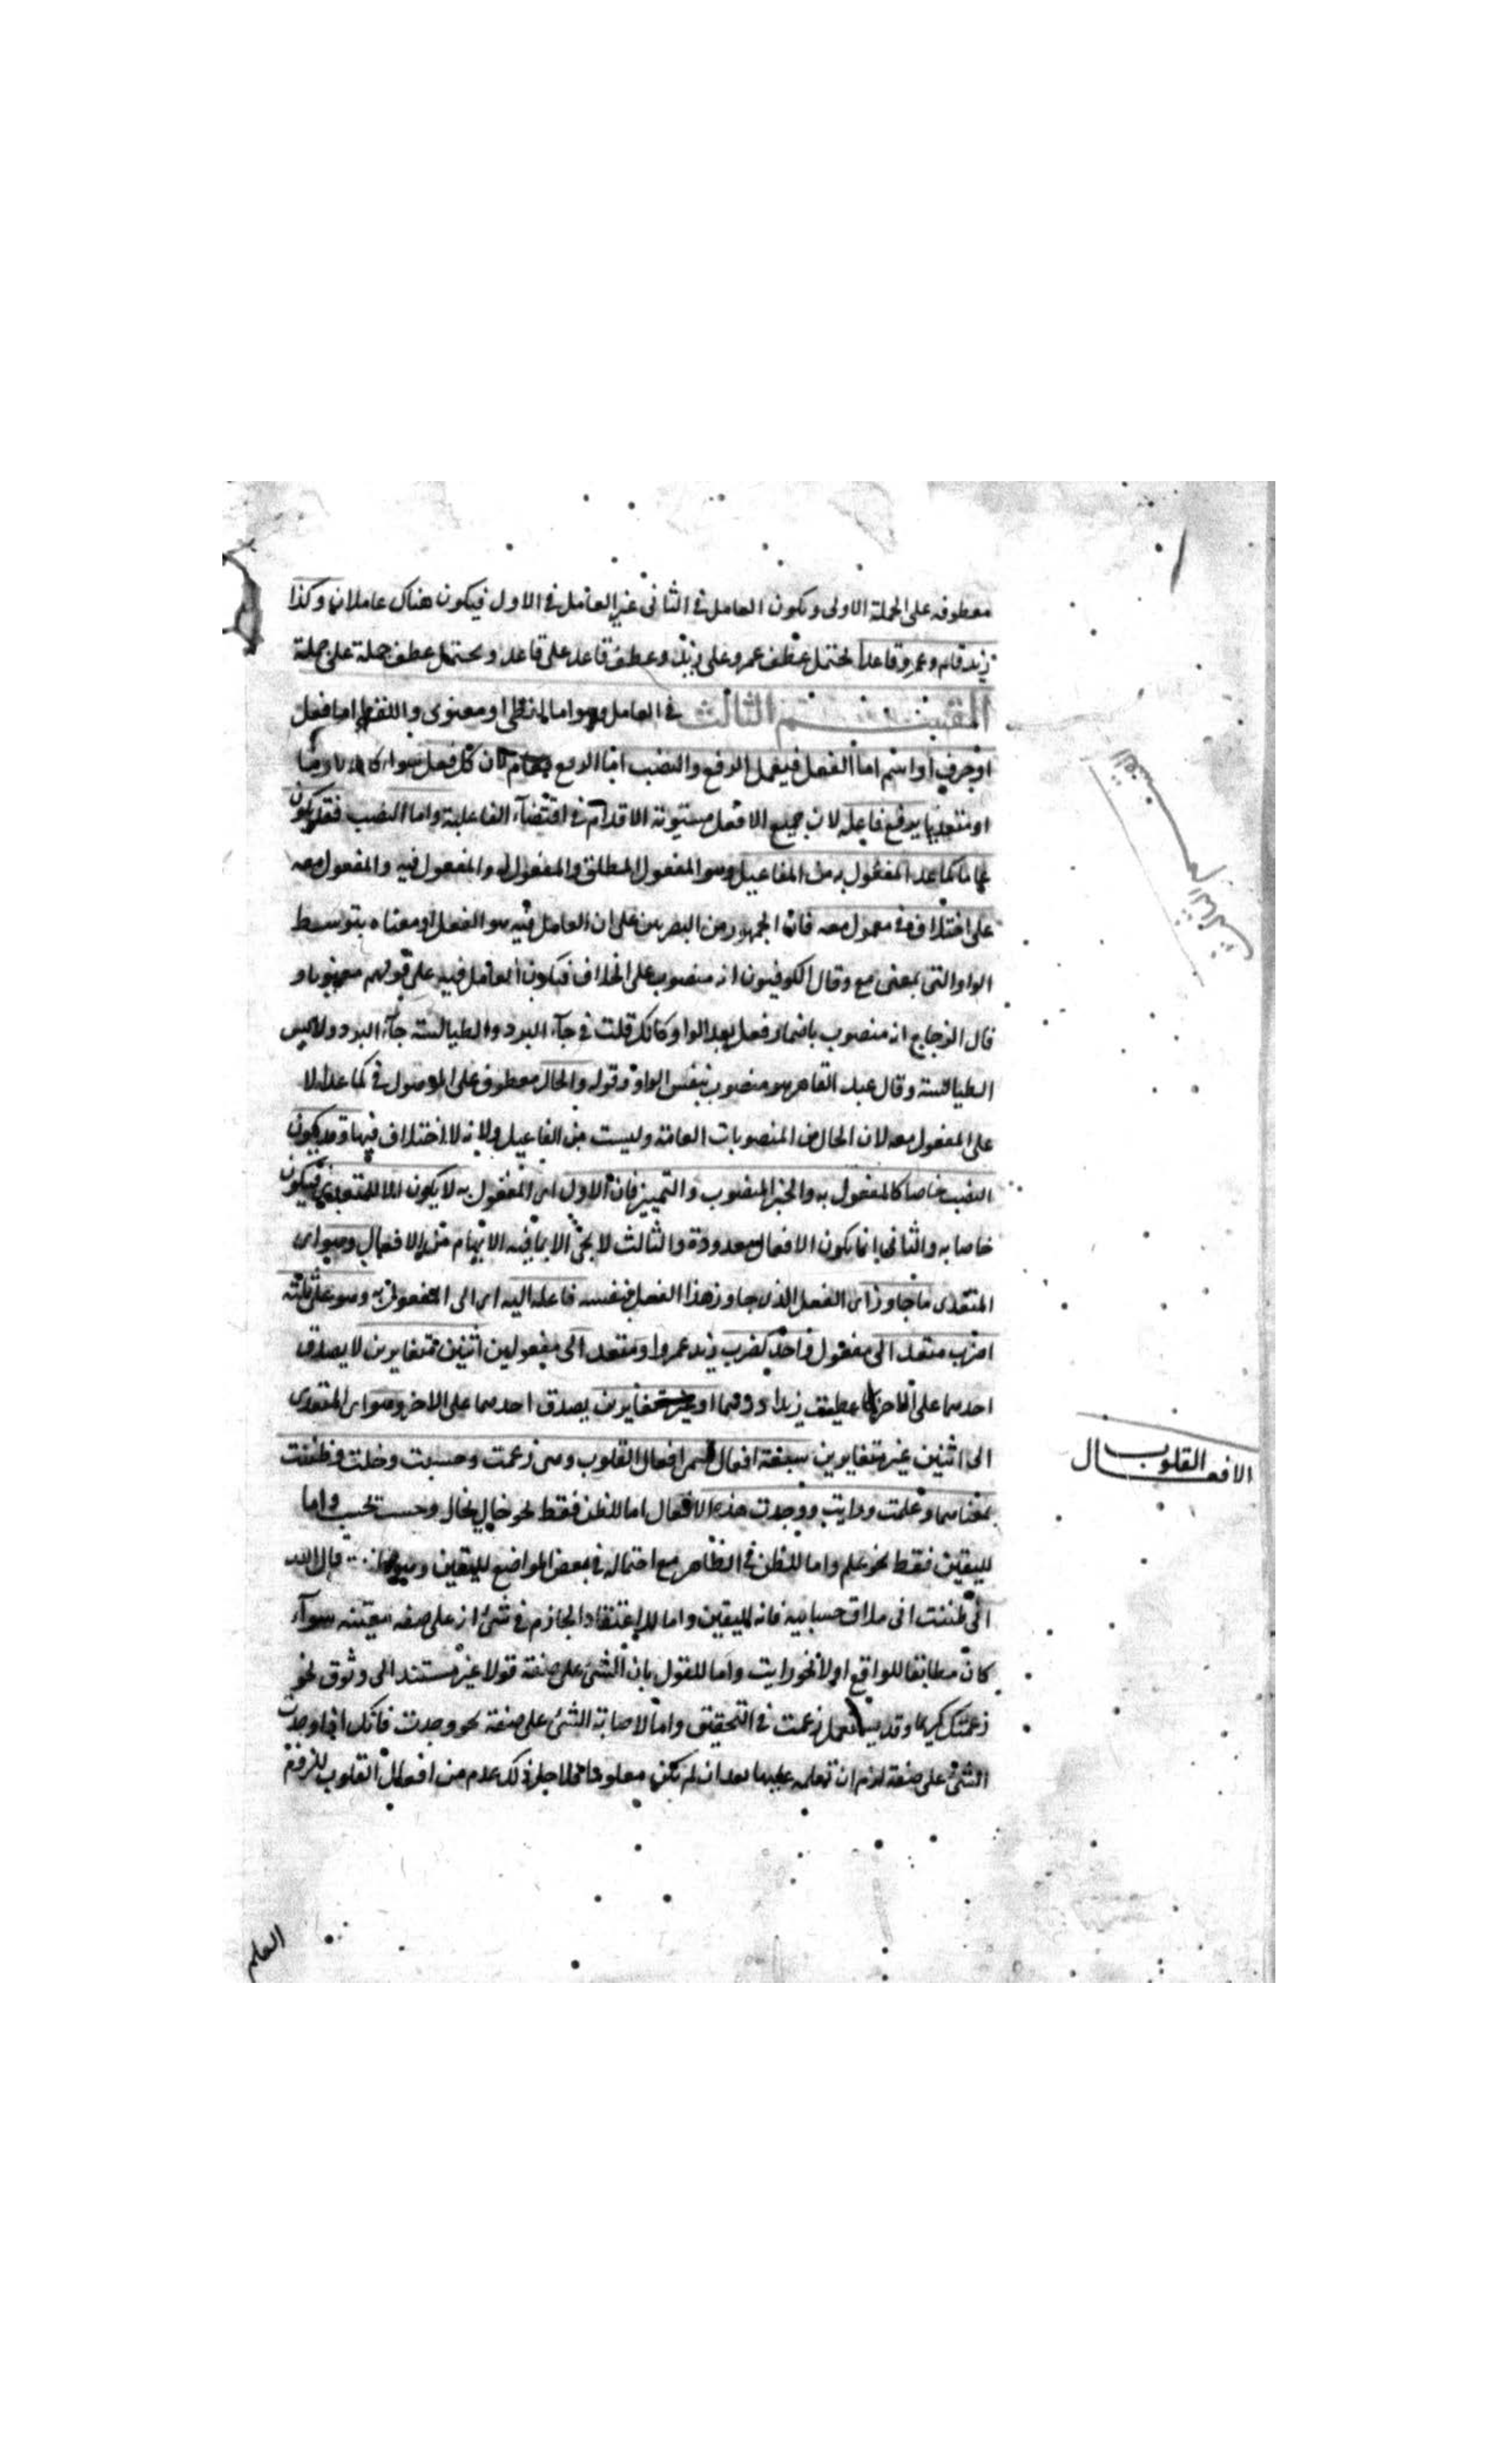 معطوفه على الجملة الاولى ويكون العامل فى الثانى غير العامل فى الاول فيكون هناك عاملان وكذا
زيد قام وعمرو قاعدا يحتمل عطف عمرو على زيد وعطف قاعد على قاعد ويحتمل عطف جملة على جملة
القسم الثالث فى العامل وهو اما لفظى او معنوى واللفظى اما فعل
او حرف او اسم اما الفعل فيعمل الرفع والنصب اما الرفع فعام لان كل فعل سواء كان لازما
او متعديا يرفع فاعله لان جميع الافعال مستوية الاقدام فى اقتضاء الفاعلية واما النصب فقد يكون
عاما كما عدا المفعول به من المفاعيل وهو المفعول المطلق والمفعول له والمفعول فيه والمفعول معه
على اختلاف فى مفعول معه فان الجمهور من البصريين على ان العامل فيه هو الفعل او معناه بتوسط
الواو التى بمعنى مع وقال الكوفيون انه منصوب على الخلاف فيكون العامل فيه على قولهم معنويا و
قال الزجاج انه منصوب باضمار فعل بعد الواو كانك قلت فى جاء البرد والطيالسة جاء البرد ولابس
الطيالسة وقال عبد القاهر هو منصوب بنفس الواو وقوله والحال معطوف على الموصول فى كما عدا لا
على المفعول معه لان الحال من المنصوبات العامة وليست من المفاعيل ولانه لا اختلاف فيها وقد يكون
النصب خاصا كالمفعول به والخبر المنصوب والتمييز فان الاول اى المفعول به لا يكون الا للمتعدى فيكون
خاصا به والثانى انما يكون لافعال معدودة والثالث لا يجئ الا بما فيه الابهام من الافعال وهو اى
المتعدى ما جاوز اى الفعل الذى جاوز هذا الفعل بنفسه فاعله اليه اى الى المفعول به وهو على ثلثة
اضرب متعد الى مفعول واحد كضرب زيد عمروا ومتعد الى مفعولين اثنين متغايرين لا يصدق
احدهما على الاخر كاعطيت زيدا درهما او غير متغايرين يصدق احدهما على الاخر وهو اى المتعدى
الى اثنين غير متغايرين سبعة افعال تسمى افعال القلوب وهى زعمت وحسبت وخلت وظننت
بمعناهما وعلمت ورايت ووجدت هذه الافعال اما للظن فقط نحو خال يخال وحسب يحسب واما
لليقين فقط نحو علم واما للظن فى الظاهر مع احتماله فى بعض المواضع لليقين وهو ظن قال الله
انى ظننت انى ملاق حسابيه فانه لليقين واما للاعتقاد الجازم فى شئ انه على صفه معينه سواء
كان مطابقا للواقع او لا نحو رايت واما للقول بان الشئ على صفة قولا غير مستند الى وثوق نحو
زعمتك كريما وقد يستعمل زعمت فى التحقيق واما لاصابة الشئ على صفة نحو وجدت فانك اذا وجدت
الشئ على صفة لزم ان تعلمه عليها بعد ان لم يكن معلوما فلاجل ذلك عدم من افعال القلوب للزوم
الافعال القلوب
العلم